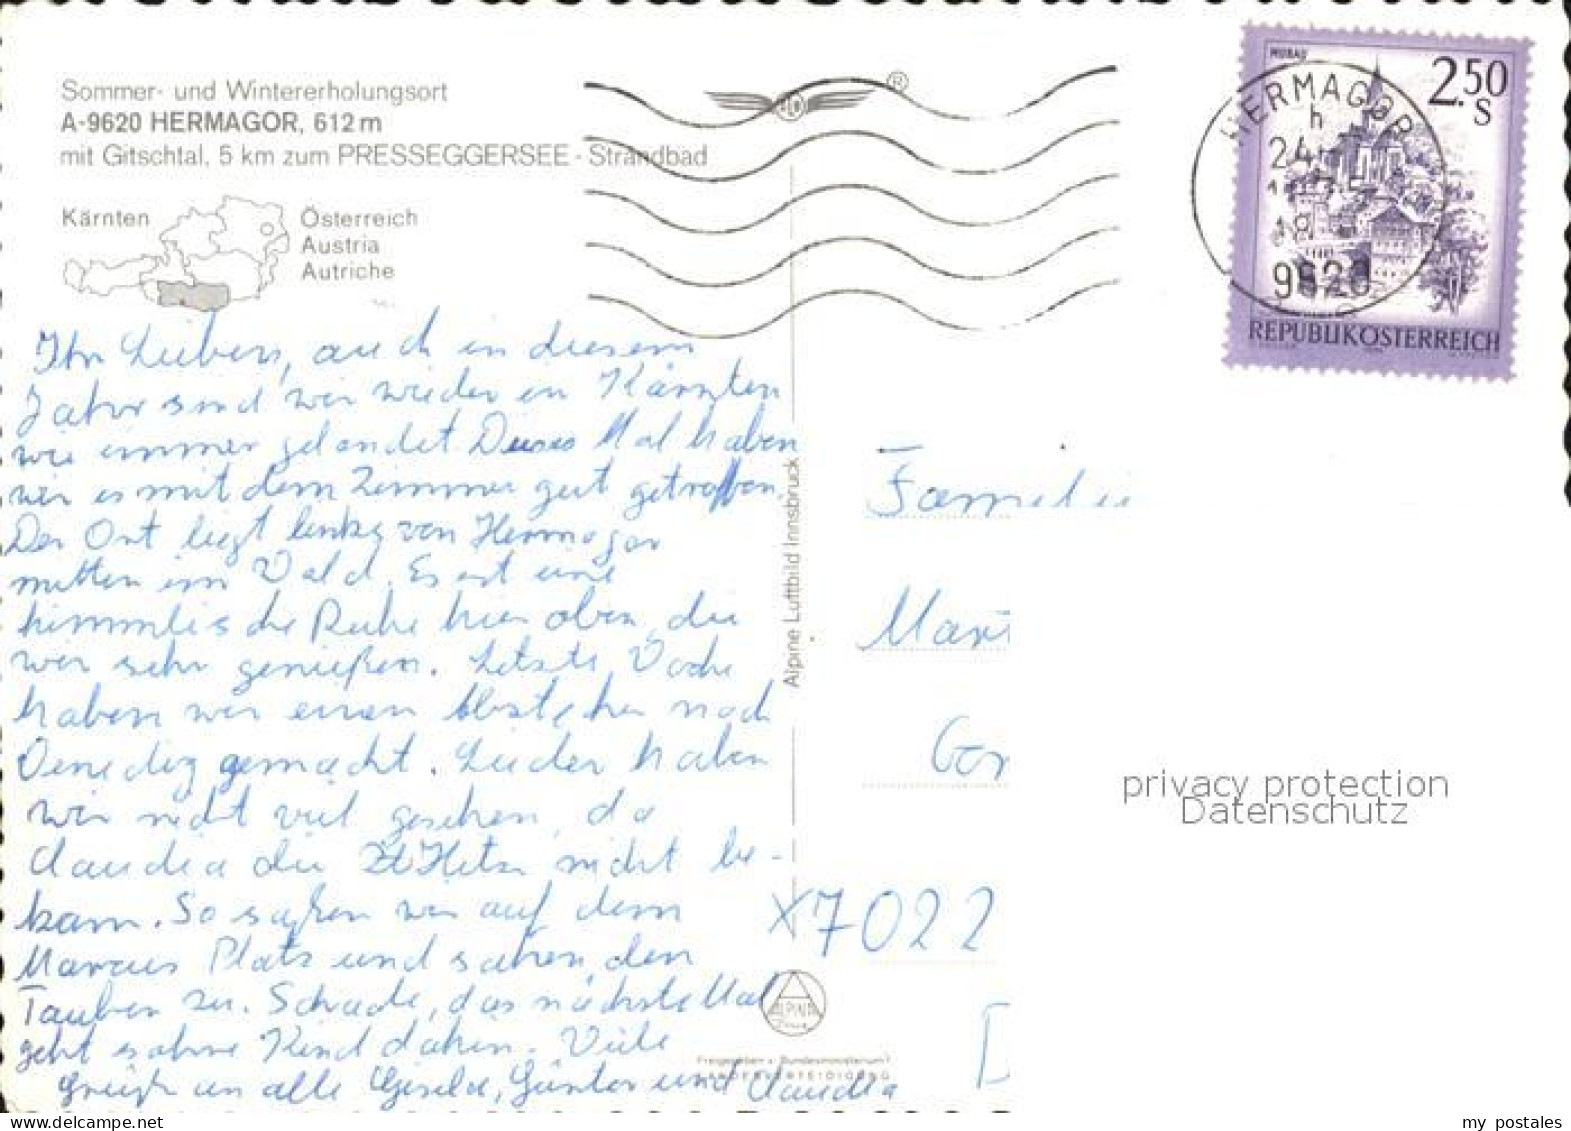 Sommer- und Wintererholungsort
A-9620 HERMAGOR, 612 m
mit Gitschtal, 5 km zum PRESSEGGERSEE - Strandbad
Kärnten
Österreich
Austria
Autriche
®
MURAU
2.50
S
REPUBLIK ÖSTERREICH
HERMAGOR
h
24
18
9620
Ihr Lieben, auch in diesem
Jahr sind wir wieder in Kärnten
wie immer gelandet Dieses Mal haben
wir es mit dem Zimmer gut getroffen.
Der Ort liegt links von Hermagor
mitten im Wald. Es ist eine
himmlische Ruhe hier oben, die
wir sehr genießen. Letzte Woche
haben wir einen Abstecher nach
Venedig gemacht. Leider haben
wir nicht viel gesehen, da
Claudia die Hitze nicht be-
kam. So saßen wir auf dem
Marcus Platz und sahen den
Tauben zu. Schade, das nächste Mal
geht es ohne Kind dahin. Viele
Grüße an alle Gisela, Günter und Claudia
Alpine Luftbild Innsbruck
Familie
Mari
Gor
X7022
D
ALPINE
Freigegeben v. Bundesministerium f.
LANDESVERTEIDIGUNG
privacy protection
Datenschutz
my postales
delcampe.net